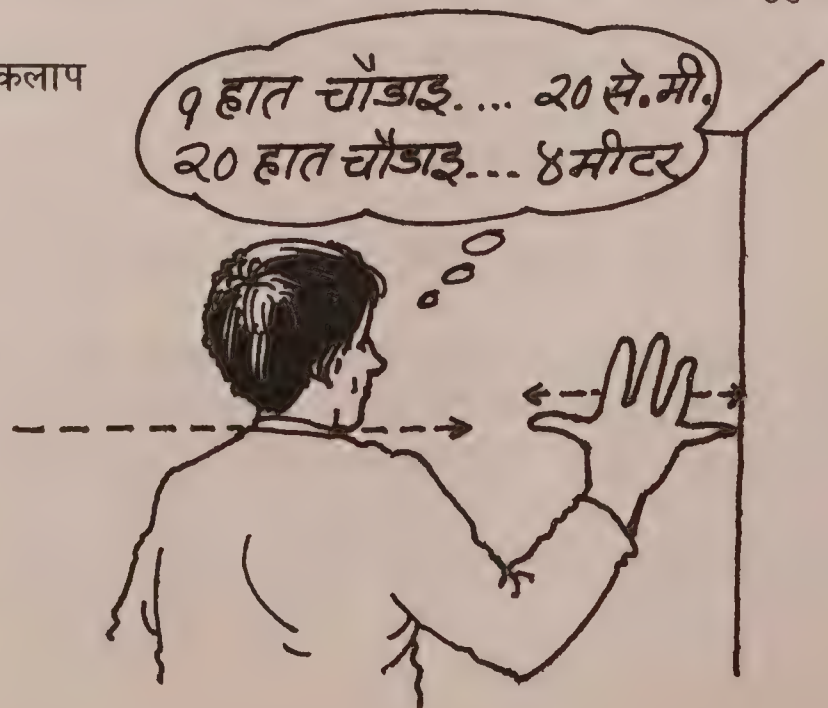 कलाप
१ हात चौडाइ.... २० से.मी.
२० हात चौडाइ... ४ मीटर